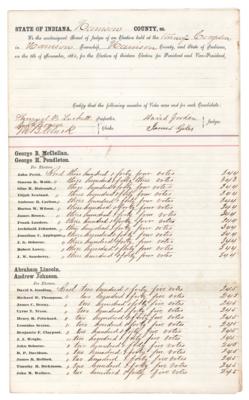 STATE OF INDIANA, Harrison COUNTY, ss.
We the undersigned Board of Judges of an Election held at the
in Harrison Township, Harrison County, and State of Indiana,
on the 8th of November, 1864, for the Election of thirteen Elector for President and Vice-President,
Certify that the following number of Votes were cast for each Candidate:
Inspector David Jordan
Clerks James Giles
George B. McClellan.
George H. Pendleton.
For Electors.
John Pettit, Had three hundred & forty four votes 344
three hundred & forty four votes 344
Silas M. three hundred & forty four votes 344
three hundred & forty four votes 344
Andrew three hundred & forty four votes 344
three hundred & forty four votes 344
James Brown, three hundred & forty four votes 344
Frank Landers, three hundred & forty four votes 344
Archibald Johnston, three hundred & forty four votes 344
Jonathan C. Applegate, three hundred & forty four votes 344
J. S. three hundred & forty four votes 344
Robert Lowry, three hundred & forty four votes 344
J. W. three hundred & forty four votes 344
Abraham Lincoln,
Andrew Johnson.
For Electors.
David S. Gooding, Had two hundred & forty five votes 245
Richard W. Thompson, two hundred & forty five votes 245
James C. Denny, two hundred & forty five votes 245
Cyrus T. two hundred & forty five votes 245
Henry R. Pritchard, two hundred & forty five votes 245
Leonidas Sexton, two hundred & forty five votes 245
Benjamin F. Claypool, two hundred & forty five votes 245
J. J. Wright, two hundred & forty five votes 245
John Osborne, two hundred & forty five votes 245
R. P. Davidson, two hundred & forty five votes 245
James B. Belford, two hundred & forty five votes 245
Timothy R. Dickinson, two hundred & forty five votes 245
John M. Wallace, two hundred & forty five votes 245